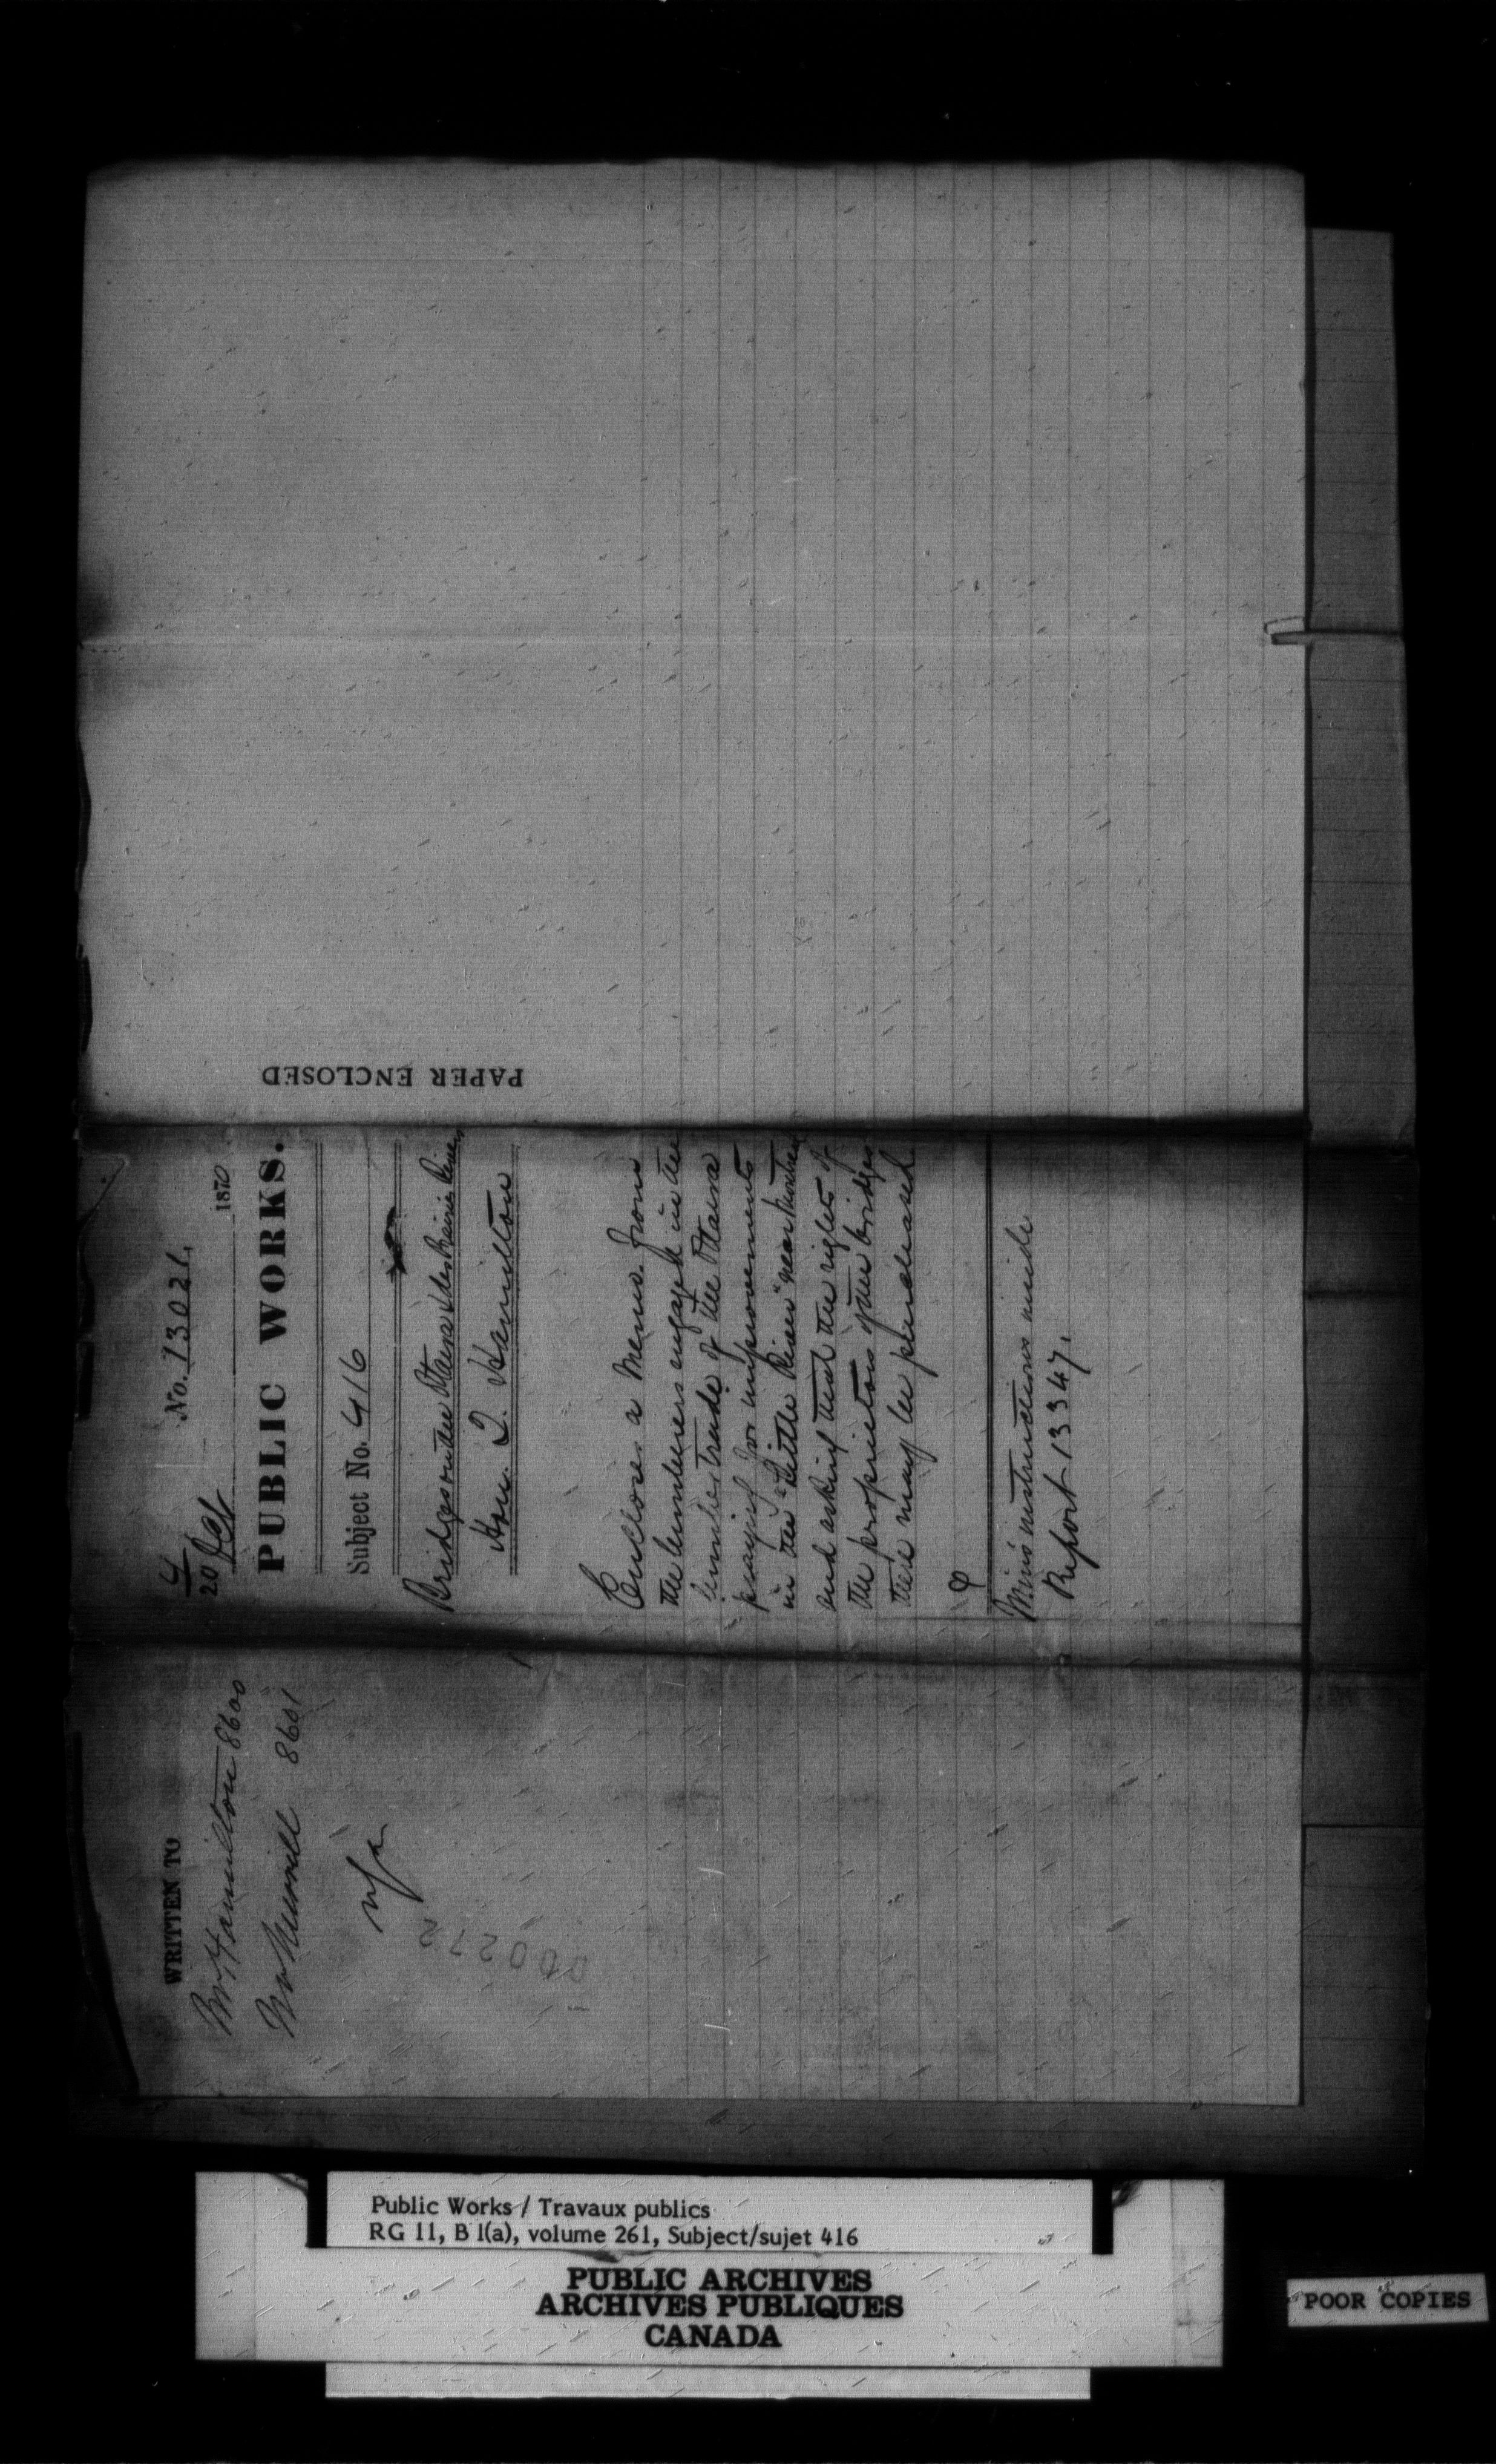 WRITTEN TO
Mr Hamilton 8600
8601
000272
4
20 Oct
No. 13021.
1870
PUBLIC WORKS.
Subject No. 416
Bridges on the Ottawa & des Prairies Rivers
Hon. J. Hamilton
Encloses a Memo. from
the lumberers engaged in the
lumber trade of the Ottawa
praying for improvements
in the "Little River" near Montreal
and asking that the rights of
the proprietors of the bridges
there may be purchased.
Min's instructions inside
Report 13347.
PAPER ENCLOSED
Public Works / Travaux publics
RG 11, B 1(a), volume 261, Subject/sujet 416
PUBLIC ARCHIVES
ARCHIVES PUBLIQUES
CANADA
POOR COPIES